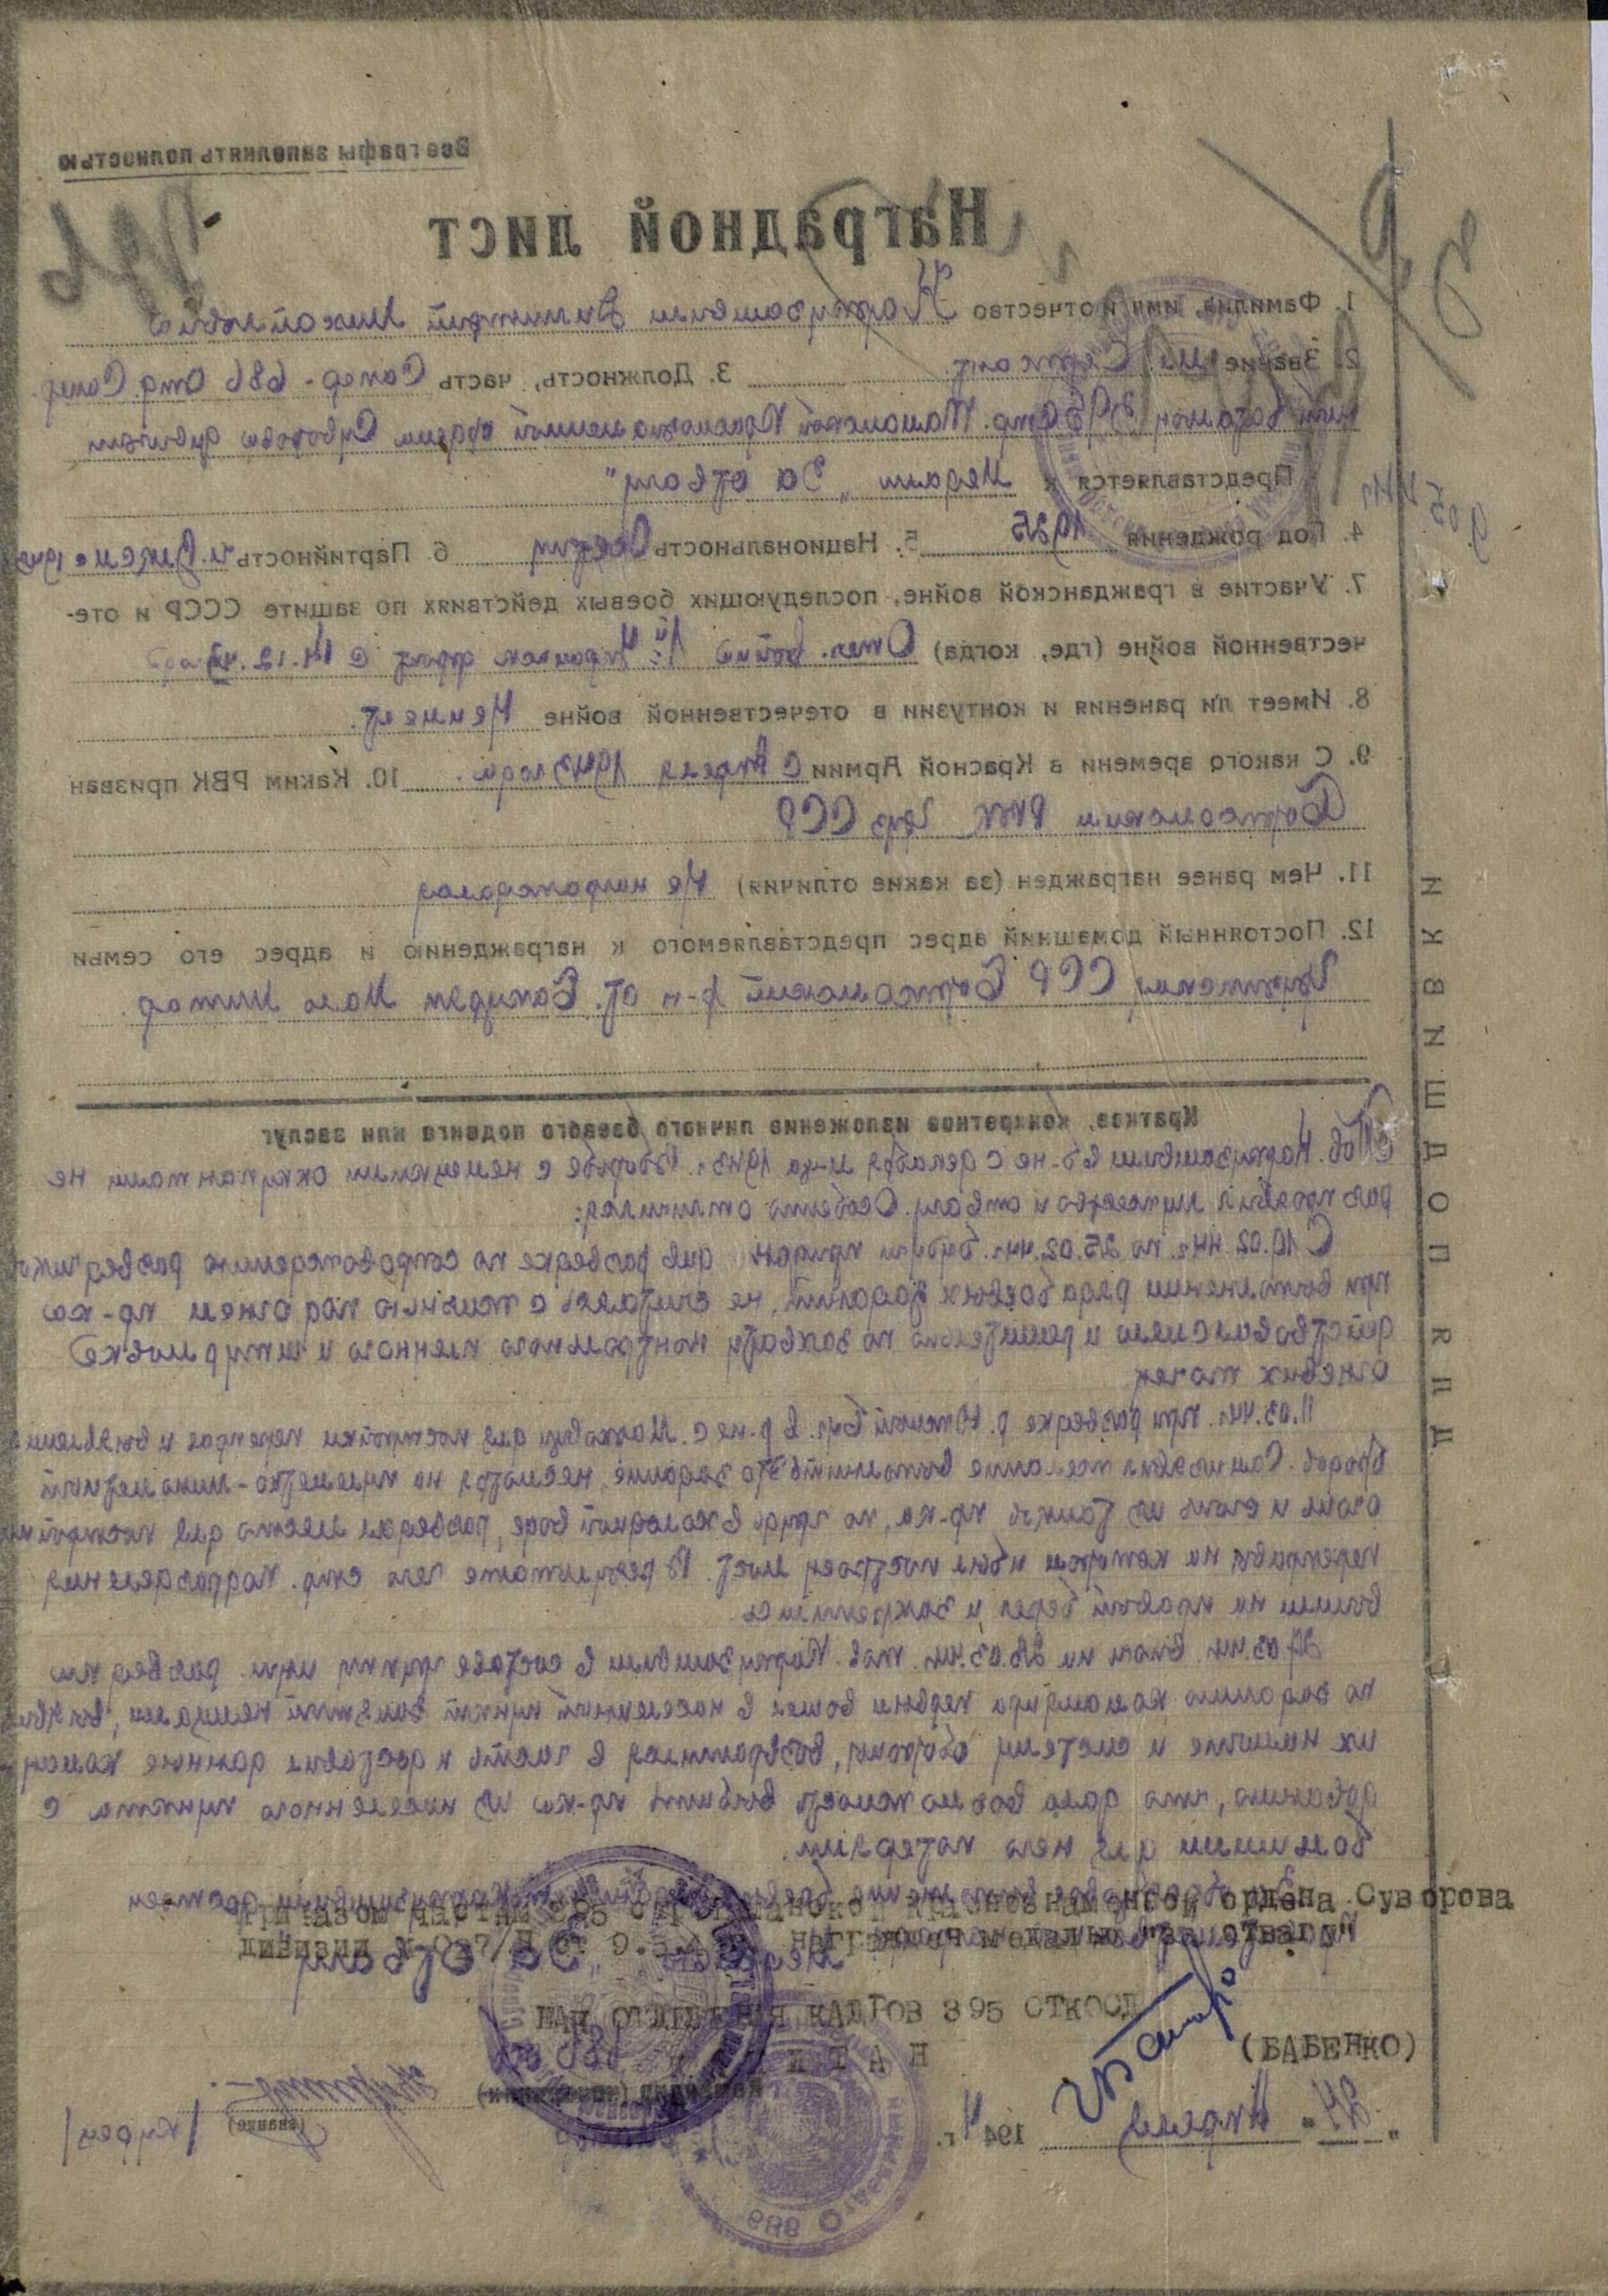 Все графы заполнять полностью
Наградной лист
1. Фамилия, имя и отчество Дмитрий Михайлович
2. Звание Сержант 3. Должность, часть Сапер - 686 Отд. Сапер
ный батальон 395 Стр. Таманской Краснознаменной ордена Суворова дивизии
Представляется к Медали „За отвагу“
4. Год рождения 1925 5. Национальность Осетин 6. Партийность чл. ВЛКСМ с
7. Участие в гражданской войне, последующих боевых действиях по защите СССР и оте-
чественной войне (где, когда) Отеч. война 1й Украин. фронт с 14.12.43 года
8. Имеет ли ранения и контузии в отечественной войне Не имеет.
9. С какого времени в Красной Армии с Апреля 1943 года. 10. Каким РВК призван
РВК Груз ССР
11. Чем ранее награжден (за какие отличия) Не награждался
12. Постоянный домашний адрес представляемого к награждению и адрес его семьи
Грузинская ССР р-н ст.
Краткое, конкретное изложение личного боевого подвига или заслуг
Тов. в б-не с декабря м-ца 1943 г. В борьбе с немецкими оккупантами не
раз проявил мужество и отвагу. Особенно отличился:
С 10.02.44г. по 25.02.44г. будучи придан див разведке по сопровождению разведчиков
при выполнении ряда боевых заданий, не считаясь с жизнью под огнем пр-ка
действовал смело и решительно по захвату контрольного пленного и штурмовке
огневых точек
11.03.44г. при разведке р. Южный Буг. в р-не с. для постройки переправ и выявления
бродов. Сам изъявил желание выполнить это задание, несмотря на пулеметно-минометный
огонь и огонь из танков пр-ка, по грудь в холодной воде, разведал место для постройки
переправы на котором и был построен мост. В результате чего стр. подразделения
вышли на правый берег и закрепились
27.03.44г. в ночь на 28.03.44г. тов. в составе группы инж. разведки
по заданию командира первым вошел в населенный пункт занятый немцами, выявил
их наличие и систему обороны, возвратился в часть и доставил данные коман
дованию, что дало возможность выбить пр-ка из населенного пункта с
большими для него потерями.
За образцовое выполнение боевых заданий тов. достоин
Медали „За отвагу“
Приказом частям 395 стр Таманской Краснознаменной ордена Суворова
дивизии № 037/Н от 9.5.44 г. награжден медалью "за отвагу"
НАЧ ОТДЕЛЕНИЯ КАДРОВ 395 СТКОСД
КАПИТАН
(БАБЕНКО)
Командир
(звание)
„24“ Апреля 1944 г.
ДЛЯ ПОДШИВКИ